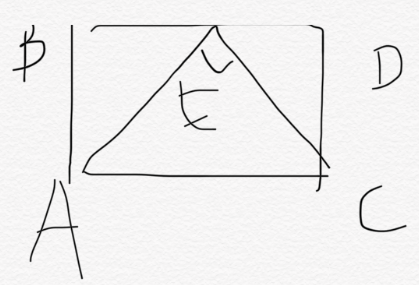 B
D
E
A
C